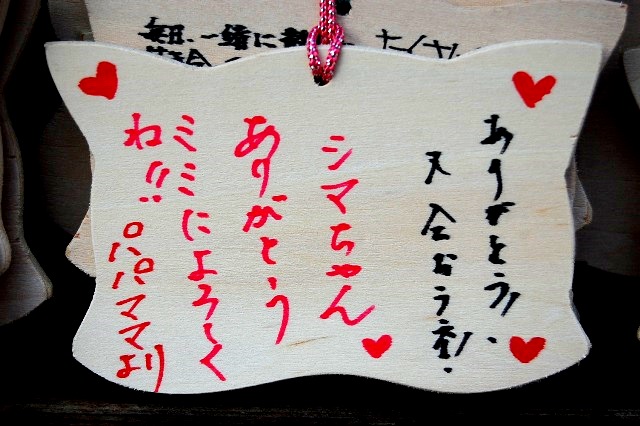 ありがとう!
又会おう
シマちゃん
ありがとう
ミミによろしく
ね!!
パパママより
一緒に